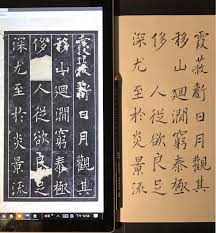 霞蔽虧日月觀其
移山迴澗窮泰極
侈人從欲良足
深尤至於炎景流
霞蔽虧日月觀其
移山迴澗窮泰極
侈以人從欲良足
深尤至於炎景流